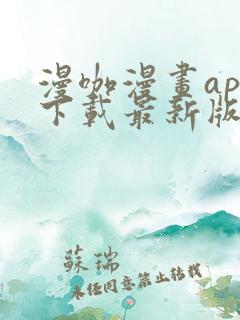 漫咖漫畫ap
下載最新版
蘇瑞
未任同意禁止转载